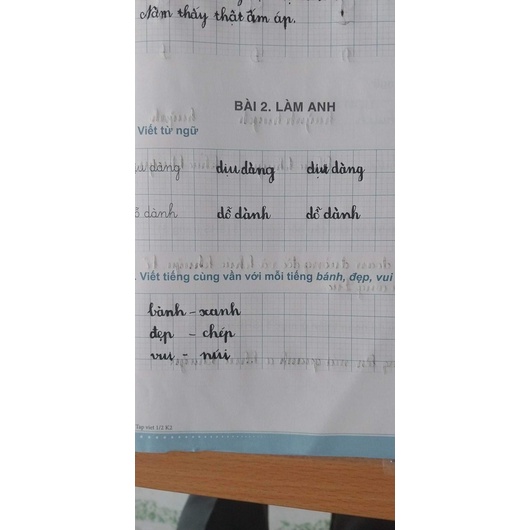 Nằm thấy thật ấm áp.
BÀI 2. LÀM ANH
Viết từ ngữ
dàng dịu dàng dịu dàng
dành dỗ dành dỗ dành
. Viết tiếng cùng vần với mỗi tiếng bánh, đẹp, vui
bánh - xanh
đẹp - chép
vui - núi
Tập viết 1/2 K2